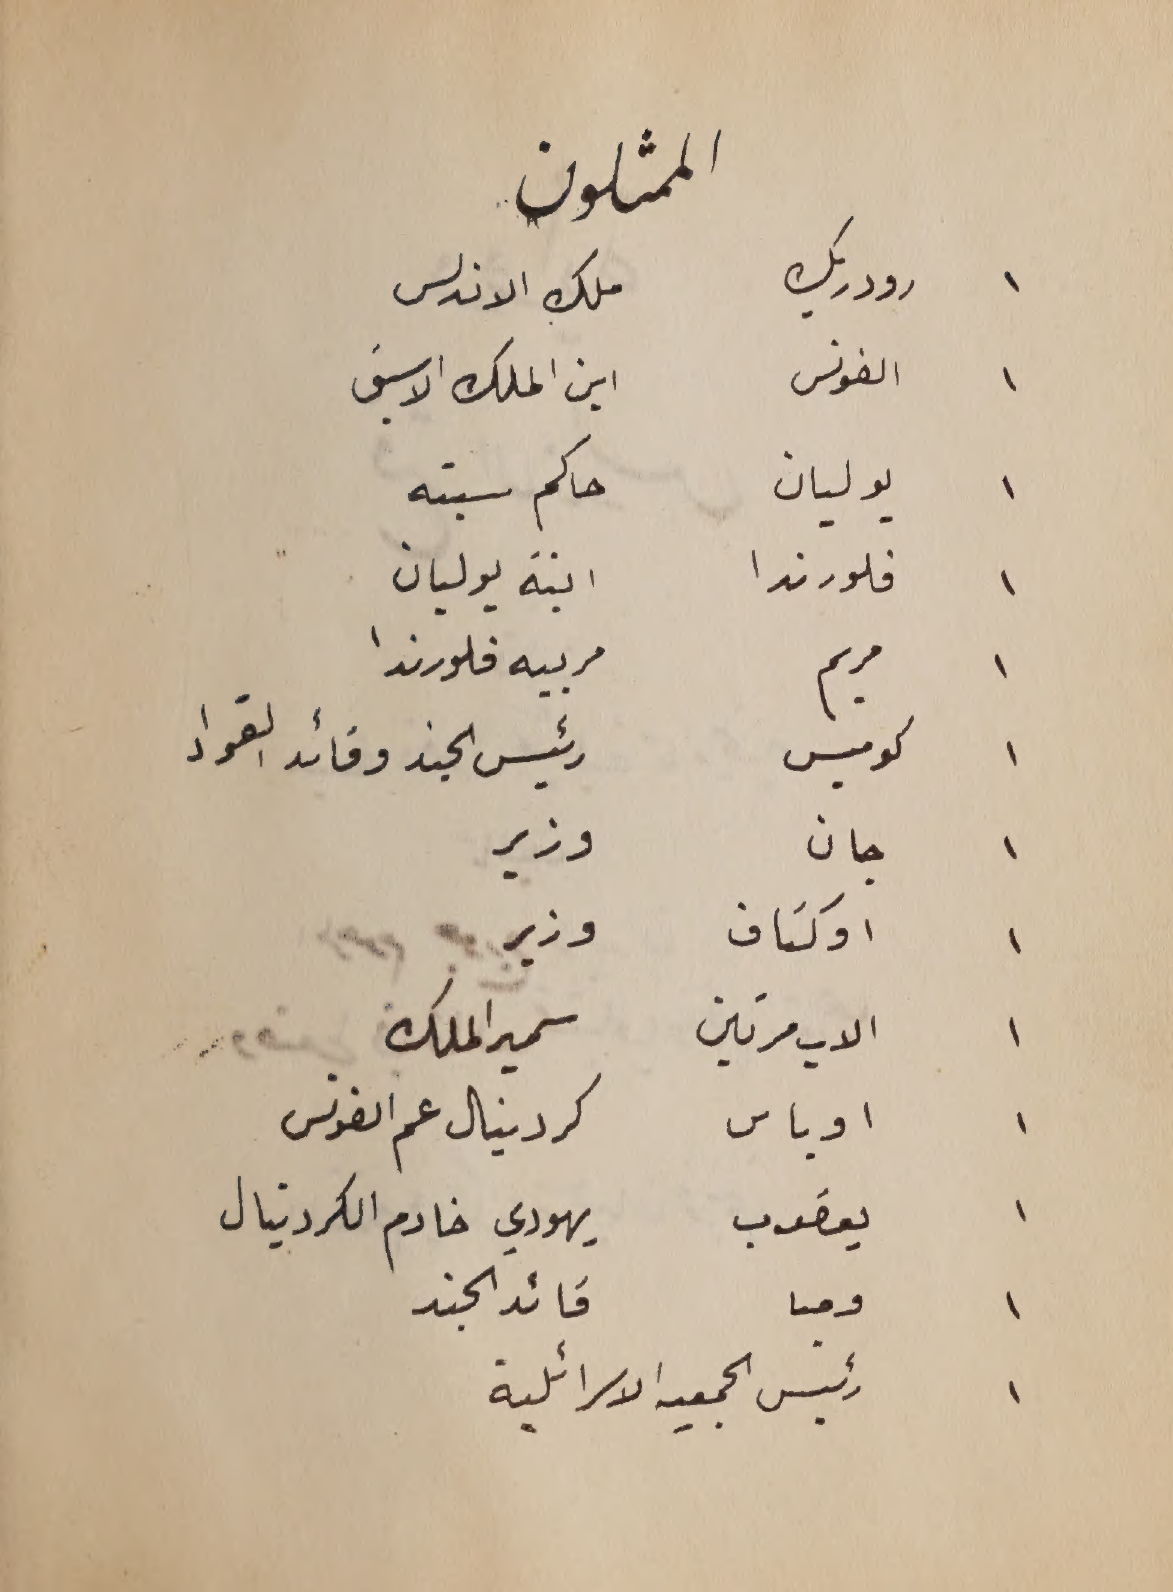 الممثلون
١ رودريك ملك الاندلس
١ الفونس ابن الملك الاسبق
١ يوليان حاكم سبته
١ فلورندا ابنة يوليان
١ مريم مربيه فلورندا
١ كوميس رئيس الجند وقائد القواد
١ جان وزير
١ اوكتاف وزير
١ الاب مرتين سمير الملك
١ اوباس كردينال عم الفونس
١ يعقوب يهودي خادم الكردينال
١ قائد الجند
١ رئيس الجمعيه الاسرائلية